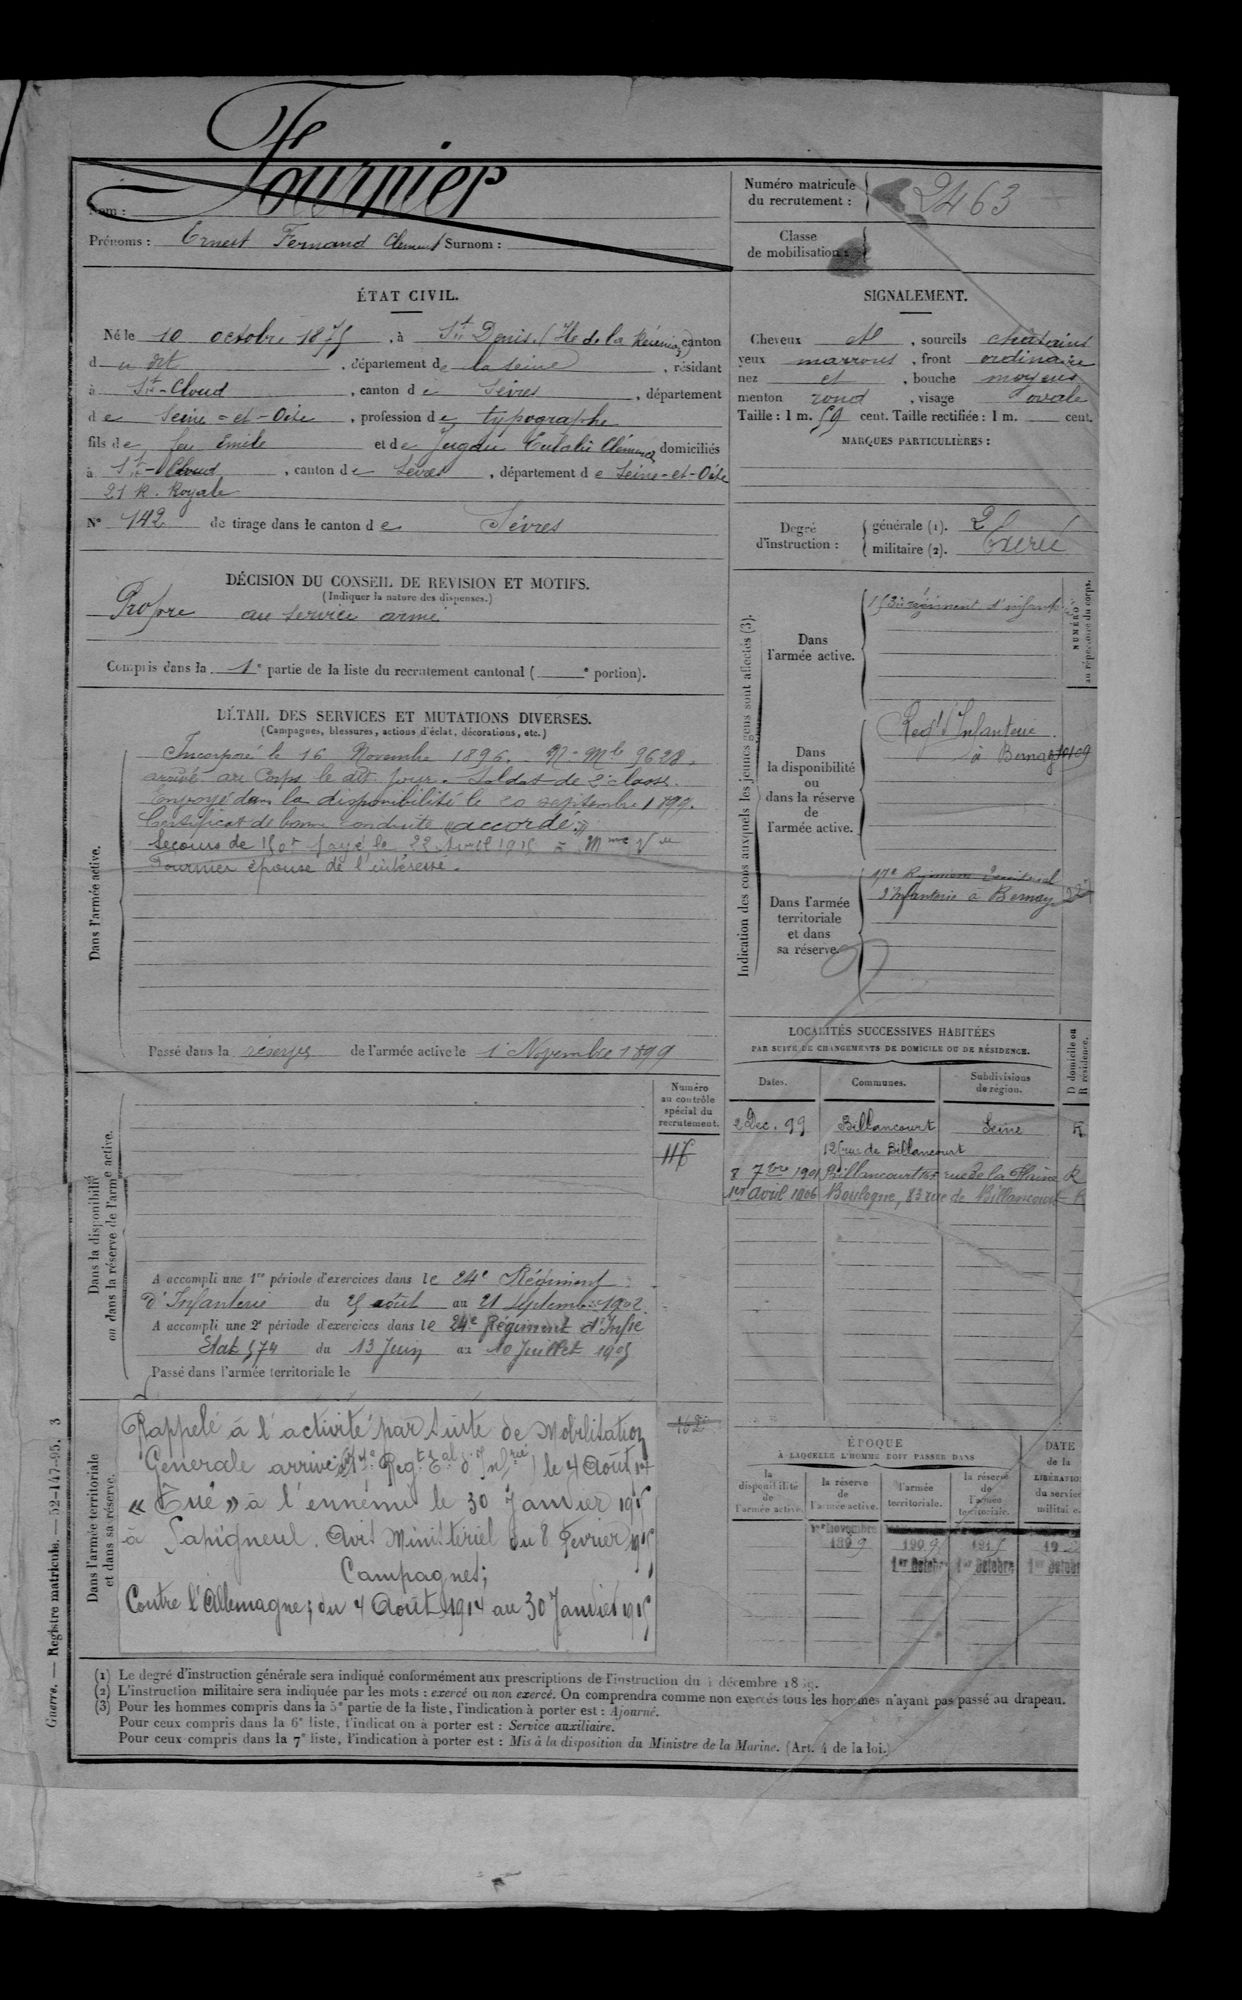 Fournier
Nom :
Prénoms : Ernest Fernand Clément Surnom :
Numéro matricule du recrutement : 2463
Classe de mobilisation :
ÉTAT CIVIL.
Né le 10 octobre 1875, à St Denis (Ile de la Réunion) canton
d u dit, département de la Seine, résidant
à St-Cloud, canton de Sèvres, département
de Seine-et-Oise, profession de typographe
fils de feu Emile et de Eulalie Clémence domiciliés
à St-Cloud, canton de Sèvres, département de Seine-et-Oise
21 R. Royale
N° 142 de tirage dans le canton de Sèvres
SIGNALEMENT.
Cheveux et, sourcils chatains
yeux marrons, front ordinaire
nez et, bouche moyens
menton rond, visage ovale
Taille : 1 m. 59 cent. Taille rectifiée : 1 m. cent.
MARQUES PARTICULIÈRES :
Degré d'instruction :
générale (1). 2
militaire (2). Exercé
DÉCISION DU CONSEIL DE REVISION ET MOTIFS.
(Indiquer la nature des dispenses.)
Propre au service armé
Compris dans la 1e partie de la liste du recrutement cantonal ( e portion).
DÉTAIL DES SERVICES ET MUTATIONS DIVERSES.
(Campagnes, blessures, actions d'éclat, décorations, etc.)
Dans l'armée active.
Incorporé le 16 Novembre 1896. N° Mle 9628.
arrivé au Corps le dit jour. Soldat de 2e classe.
Envoyé dans la disponibilité le 20 septembre 1899.
Certificat de bonne conduite "accordé".
Secours de 150f payé le 22 Avril 1915 à Mme Vve
Fournier épouse de l'intéressé.
Passé dans la réserve de l'armée active le 1 Novembre 1899
Indication des corps auxquels les jeunes gens sont affectés (3).
NUMÉRO au répertoire du corps.
Dans l'armée active.
régiment d'infanterie
Dans la disponibilité ou dans la réserve de l'armée active.
Regt d'Infanterie
à Bernay
Dans l'armée territoriale et dans sa réserve.
17e Régiment Territorial
d'Infanterie à Bernay
LOCALITÉS SUCCESSIVES HABITÉES
PAR SUITE DE CHANGEMENTS DE DOMICILE OU DE RÉSIDENCE.
Dates. Communes. Subdivisions de région. D domicile ou R résidence.
2 Dec. 99 Billancourt Seine R
rue de Billancourt
8 7bre 1901 Billancourt rue de la Plaine R
1er avril 1906 Boulogne, 83 rue de Billancourt R
Dans la disponibilité ou dans la réserve de l'armée active.
Numéro au contrôle spécial du recrutement.
116
A accompli une 1re période d'exercices dans le 24e Régiment
d'Infanterie du 25 août au 21 septembre 1902.
A accompli une 2e période d'exercices dans le 24e Régiment d'Infie
Etat 574 du 13 Juin au 10 Juillet 1905
Passé dans l'armée territoriale le
Dans l'armée territoriale et dans sa réserve.
Rappelé à l'activité par suite de Mobilisation
Générale arrivé Regt Tal d'Infrie le 4 Août 14
« Tué » à l'ennemi le 30 Janvier 1915
à Sapigneul. Avis Ministériel du 8 Fevrier 1915
Campagnes;
Contre l'Allemagne; du 4 Août 1914 au 30 Janvier 1915
ÉPOQUE
À LAQUELLE L'HOMME DOIT PASSER DANS
la disponibilité de l'armée active. la réserve de l'armée active. l'armée territoriale. la réserve de l'armée territoriale.
DATE de la LIBÉRATION du service militaire.
1er Novembre
1899 1909 1915
1er Octobre 1er Octobre 1er Octobre
Guerre. — Registre matricule. — 52-147-95. 3
(1) Le degré d'instruction générale sera indiqué conformément aux prescriptions de l'instruction du décembre
(2) L'instruction militaire sera indiquée par les mots : exercé ou non exercé. On comprendra comme non exercés tous les hommes n'ayant pas passé au drapeau.
(3) Pour les hommes compris dans la 5e partie de la liste, l'indication à porter est : Ajourné.
Pour ceux compris dans la 6e liste, l'indication à porter est : Service auxiliaire.
Pour ceux compris dans la 7e liste, l'indication à porter est : Mis à la disposition du Ministre de la Marine. (Art. 4 de la loi.)